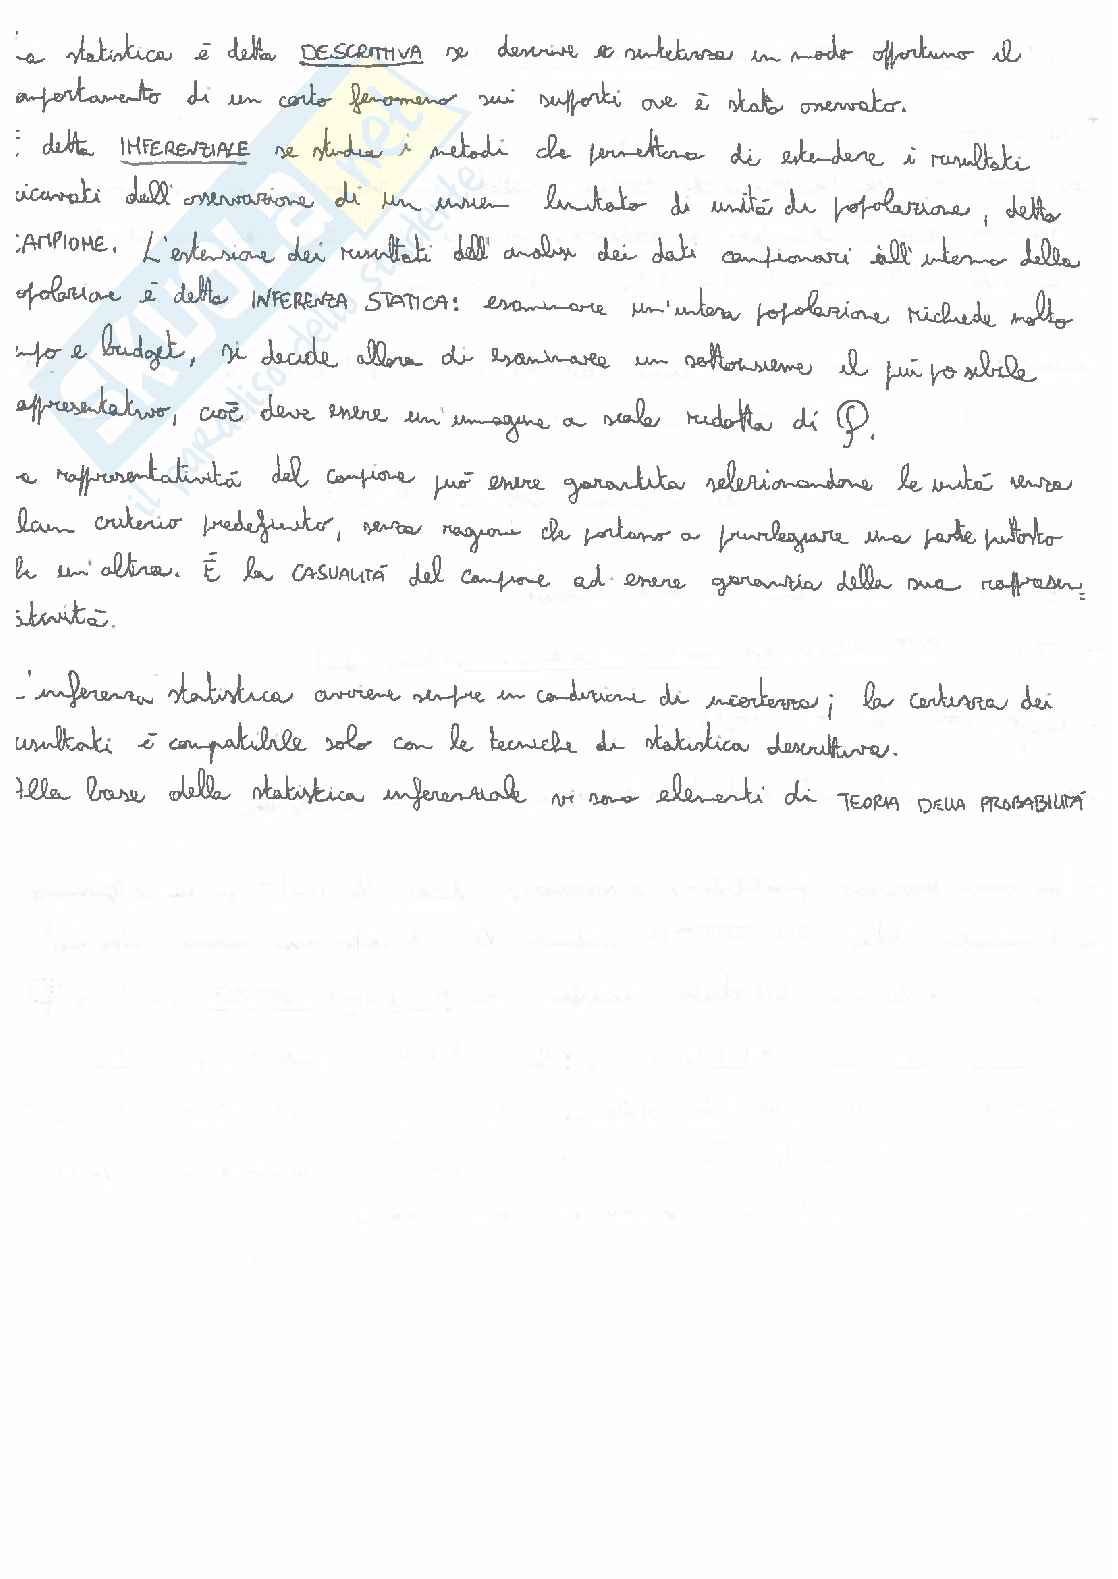 La statistica è detta DESCRITTIVA se descrive e sintetizza in modo opportuno il
omportamento di un certo fenomeno sui supporti ove è stato osservato.
È detta INFERENZIALE se studia i metodi che permettono di estendere i risultati
ricavati dall'osservazione di un insiem limitato di unità di popolazione, detta
CAMPIONE. L'estensione dei risultati dell'analisi dei dati campionari all'interno della
opolazione è detta INFERENZA STATICA: esaminare un'intera popolazione richiede molto
mpo e budget, si decide allora di esaminare un sottoinsieme il più possibile
appresentativo, cioè deve essere un'immagine a scala ridotta di P.
a rappresentatività del campione può essere garantita selezionandone le unità senza
lcun criterio predefinito, senza ragioni che portano a privilegiare una parte piuttosto
he un'altra. È la CASUALITÁ del campione ad essere garanzia della sua rappresen=
tatività.
L'inferenza statistica avviene sempre in condizione di incertezza; la certezza dei
risultati è compatibile solo con le tecniche di statistica descrittiva.
Alla base della statistica inferenziale vi sono elementi di TEORIA DELLA PROBABILITÁ
SKUOLA.net
il paradiso dello studente